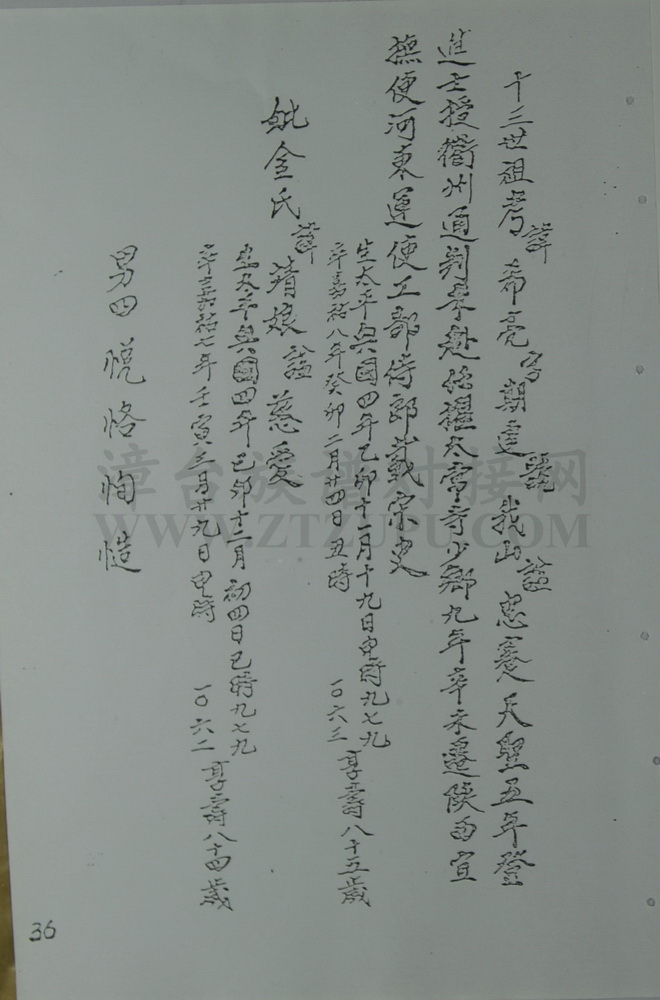 十三世祖考諱希亮字期遠號莪山諡忠憲天聖五年登
進士授衢州通判未赴任擢太常寺少卿九年辛未遷陝西宣
撫使河東運使工部侍郎載宗史
生太平興國四年己卯十一月十九日申時九七九
卒嘉祐八年癸卯二月廿四日丑時 一〇六三 享壽八十五歲
妣金氏諱靖娘諡慈愛
生太平興國四年己卯十二月初四日巳時九七九
卒嘉祐七年壬寅三月廿九日申時 一〇六二 享壽八十四歲
男四 悅 恪 恂 愷
36
漳台族谱对接网
WWW.ZTZUPU.COM